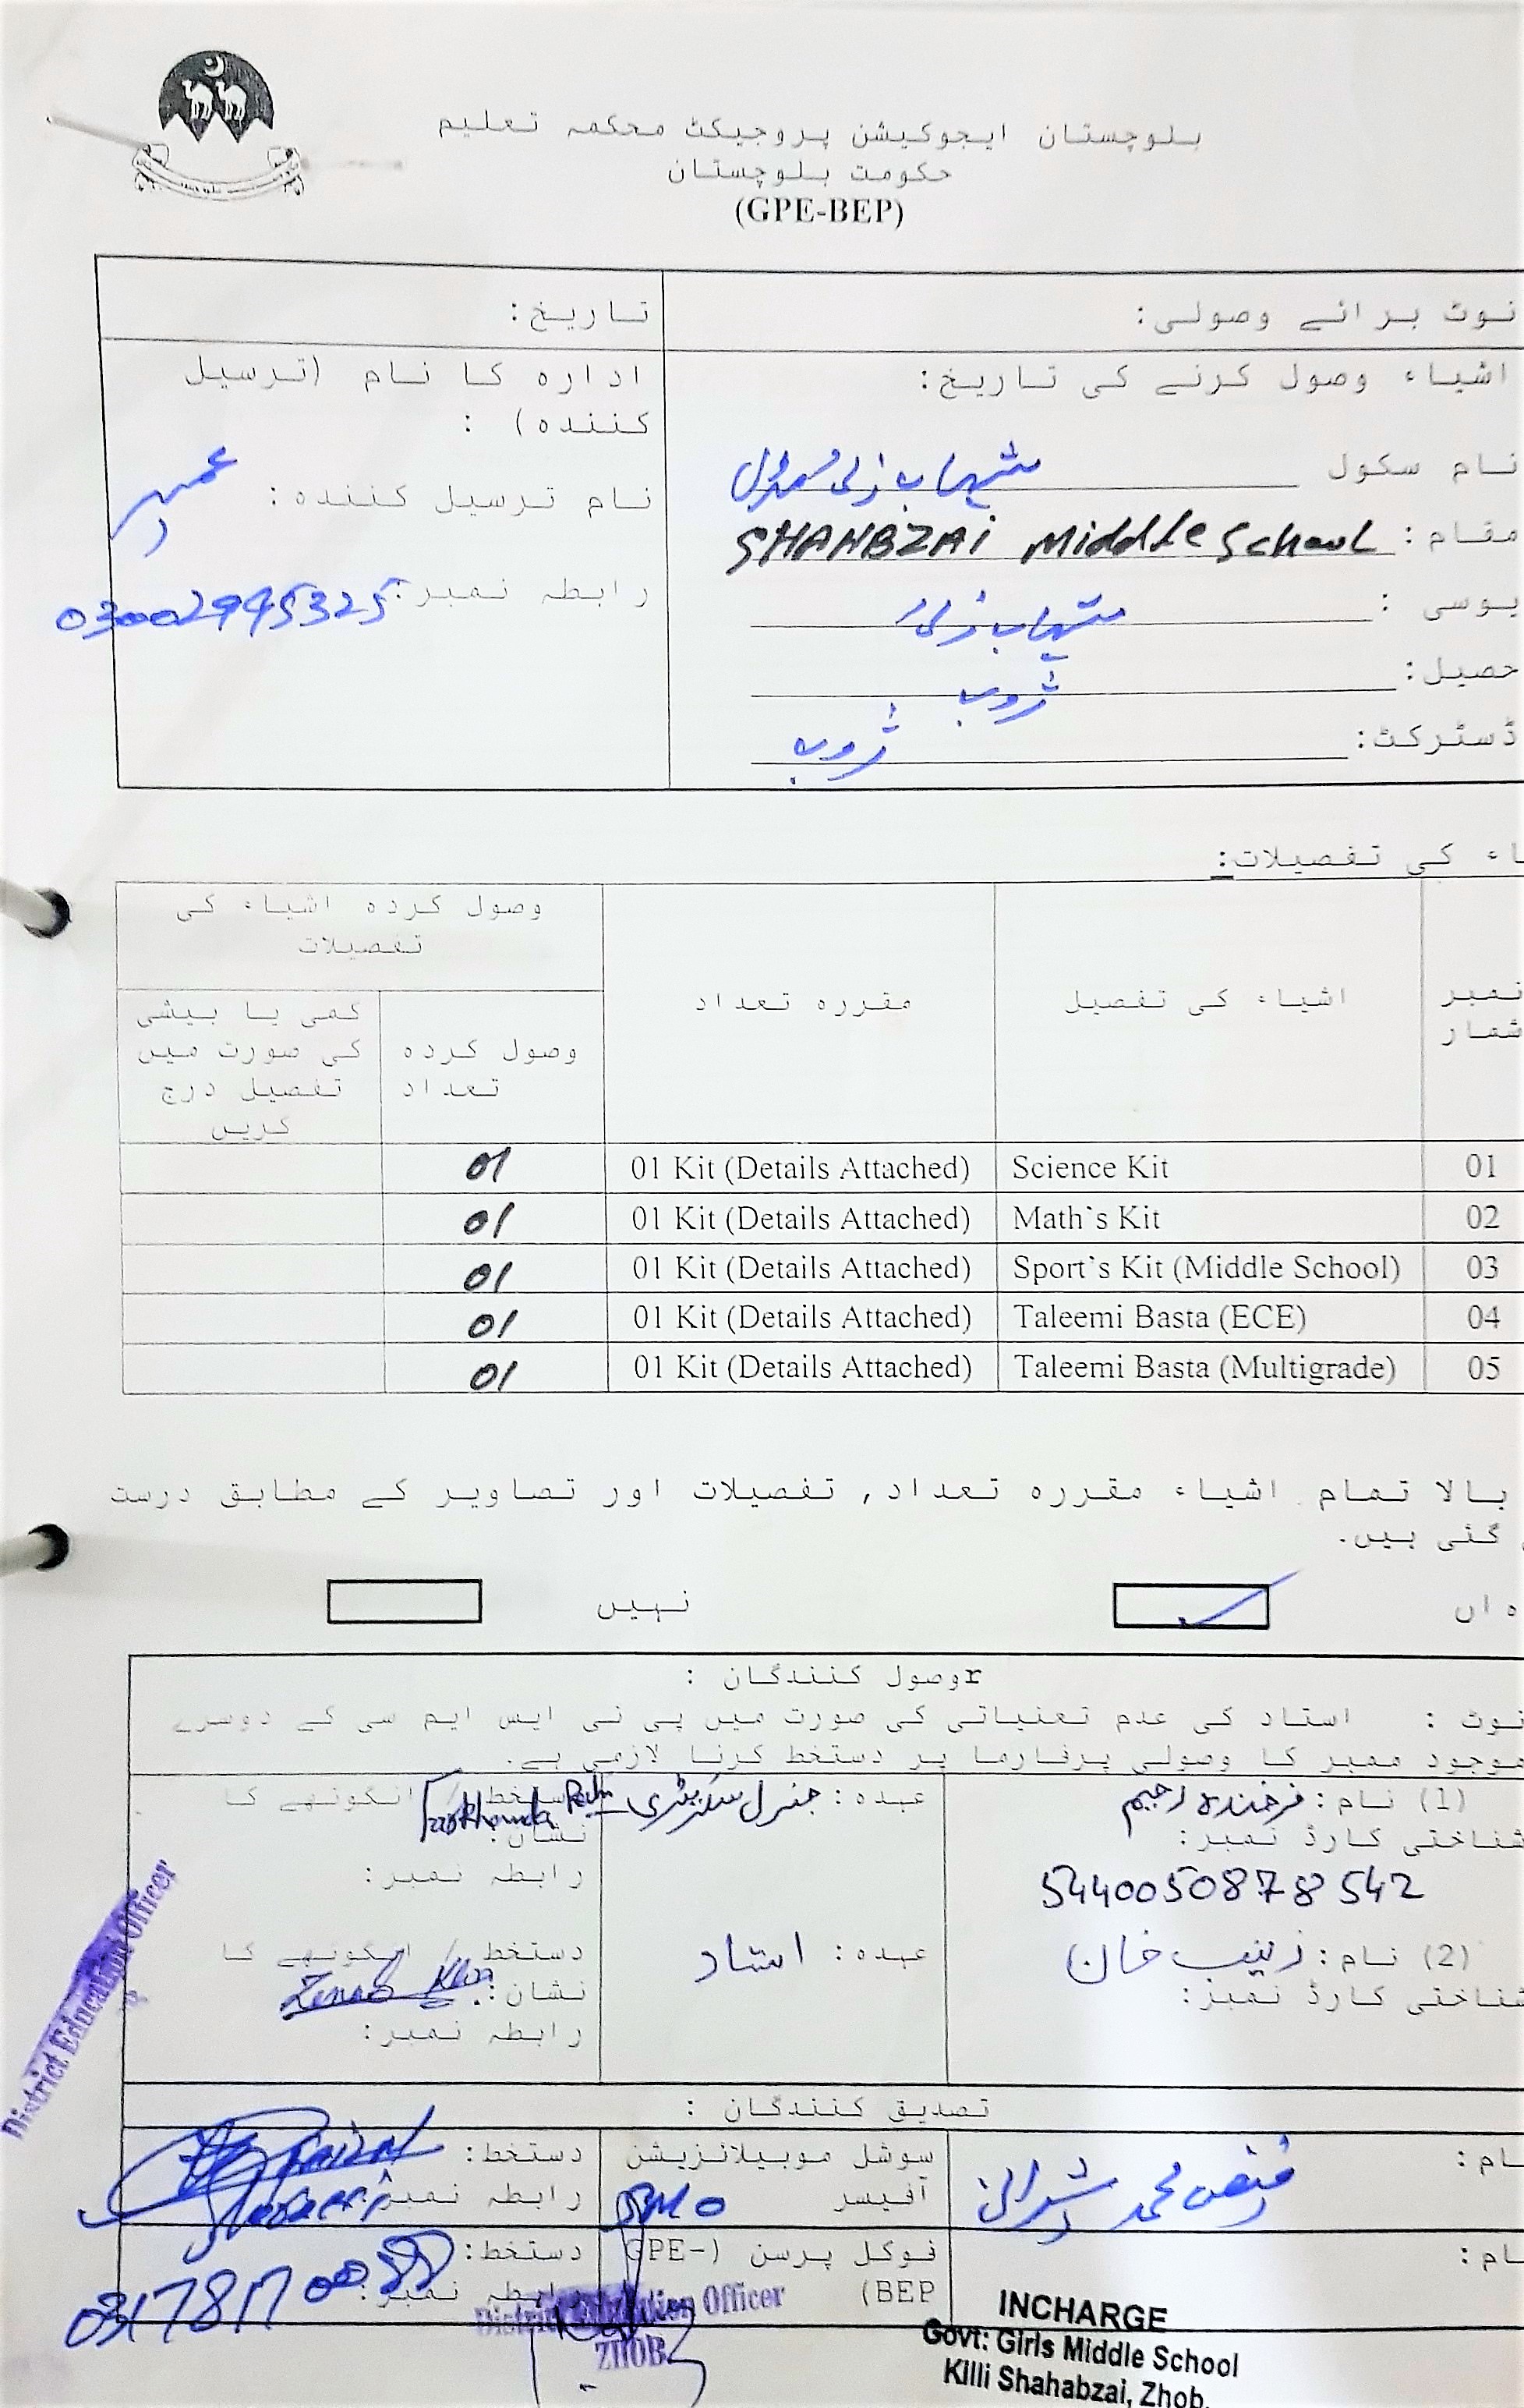 بلوچستان ایجوکیشن پروجیکٹ محکمہ تعلیم
حکومت بلوچستان
(GPE-BEP)
نوٹ برائے وصولی:
تاریخ:
اشیاء وصول کرنے کی تاریخ:
نام سکول شہاب زئی
مقام: SHAHBZAI Middle School
یوسی: شہاب زئی
حصیل: ژوب
ڈسٹرکٹ: ژوب
ادارہ کا نام (ترسیل
کنندہ) :
نام ترسیل کنندہ: عمر
رابطہ نمبر: 03002995325
اء کی تفصیلات:
نمبر شمار
اشیاء کی تفصیل
مقررہ تعداد
وصول کردہ اشیاء کی تفصیلات
وصول کردہ تعداد
کمی یا بیشی کی صورت میں تفصیل درج کریں
01 Science Kit 01 Kit (Details Attached) 01
02 Math`s Kit 01 Kit (Details Attached) 01
03 Sport`s Kit (Middle School) 01 Kit (Details Attached) 01
04 Taleemi Basta (ECE) 01 Kit (Details Attached) 01
05 Taleemi Basta (Multigrade) 01 Kit (Details Attached) 01
بالا تمام اشیاء مقررہ تعداد, تفصیلات اور تصاویر کے مطابق درست
گئی ہیں.
ہاں
نہیں
rوصول کنندگان :
نوٹ : استاد کی عدم تعنیاتی کی صورت میں پی ٹی ایس ایم سی کے دوسرے
موجود ممبر کا وصولی پرفارما پر دستخط کرنا لازمی ہے.
(1) نام: فرخندہ رحیم
شناختی کارڈ نمبر:
5440050878542
عہدہ: جنرل سکریٹری
دستخط / انگوٹھے کا
نشان:
رابطہ نمبر:
(2) نام: زینب خان
شناختی کارڈ نمبر:
عہدہ: استاد
دستخط / انگوٹھے کا
نشان: Zenab Khan
رابطہ نمبر:
District Education Officer
تصدیق کنندگان :
ام: فیض محمد شیرانی
سوشل موبیلائزیشن
آفیسر SMO
دستخط:
رابطہ نمبر:
ام:
فوکل پرسن (GPE-
BEP)
دستخط:
رابطہ نمبر:
District Education Officer
ZHOB
INCHARGE
Govt: Girls Middle School
Killi Shahabzai, Zhob.